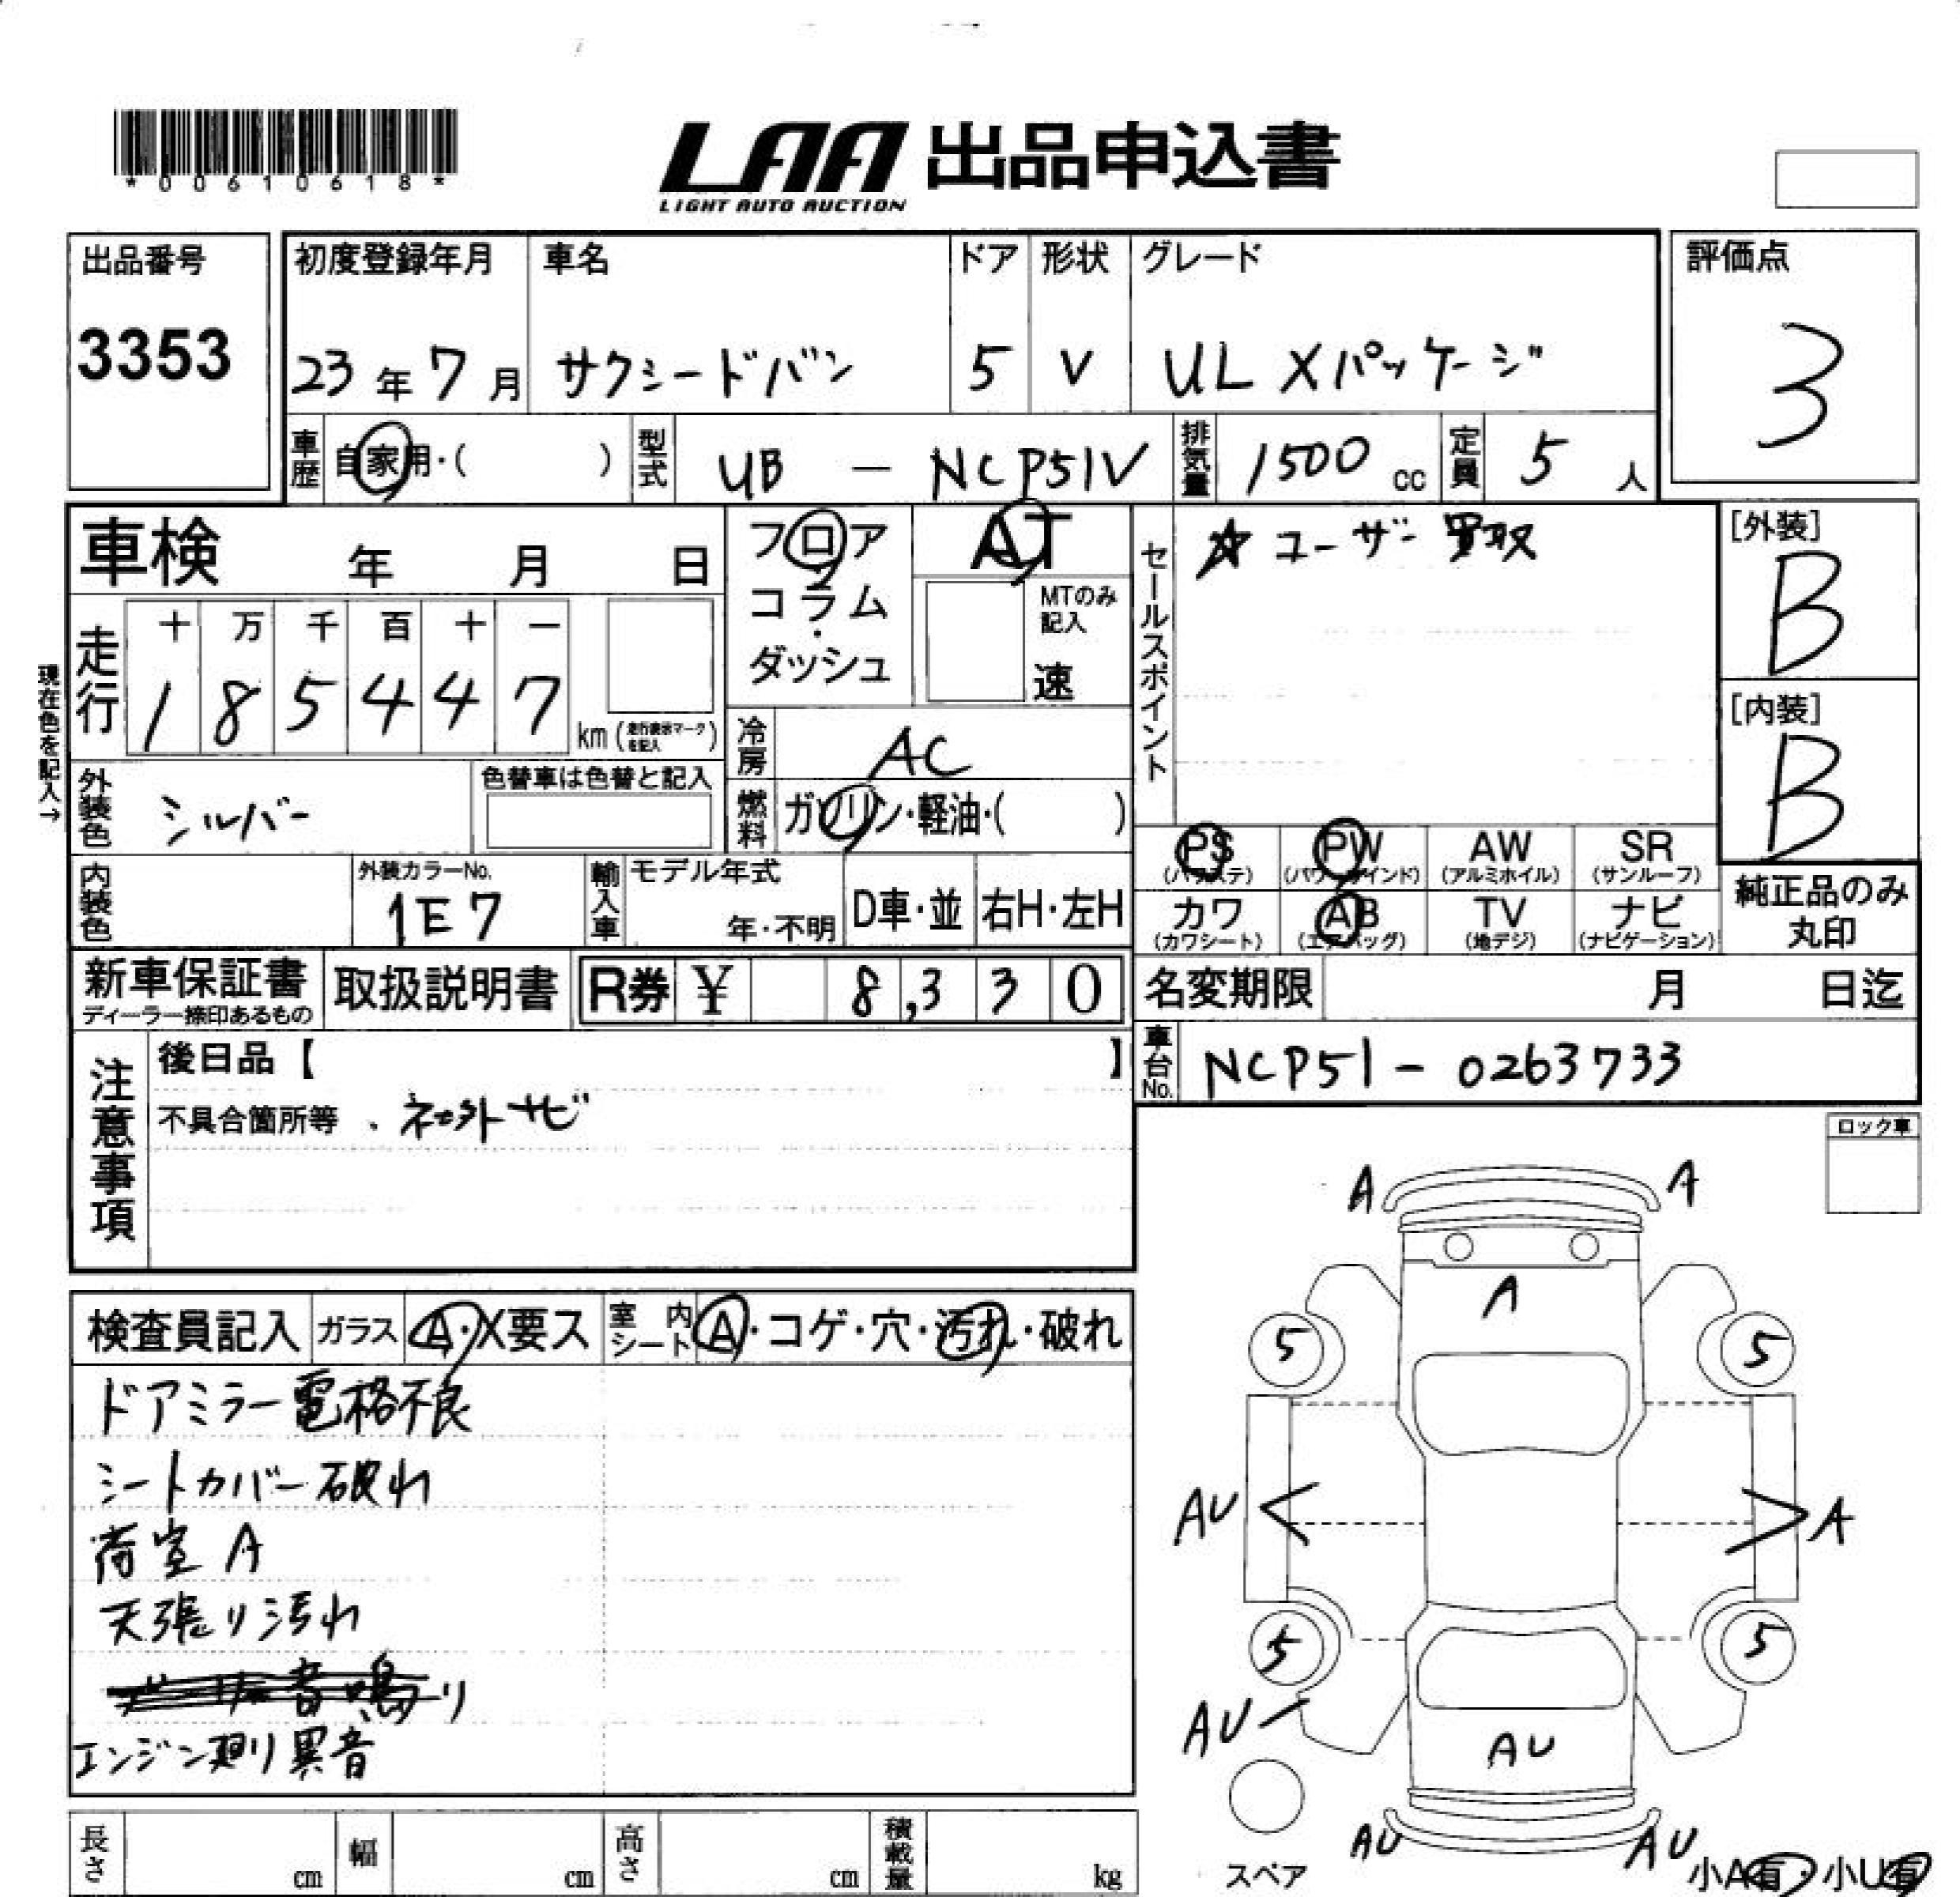 *00610618*
LAA 出品申込書
LIGHT AUTO AUCTION
出品番号
3353
初度登録年月 車名 ドア 形状 グレード
23年7月 サクシードバン 5 V UL Xパッケージ
評価点
3
車歴 自家用・( ) 型式 UB - NCP51V 排気量 1500cc 定員 5人
車検 年 月 日
フロア
コラム
・
ダッシュ
AT
MTのみ
記入
速
セールスポイント
☆ユーザー買取
[外装]
B
[内装]
B
現在色を記入→
走行
十 万 千 百 十 一
1 8 5 4 4 7 km
冷房 AC
燃料 ガソリン・軽油・( )
外装色 シルバー 色替車は色替と記入
内装色 外装カラーNo.
1E7
輸入車 モデル年式
年・不明 D車・並 右H・左H
PS PW AW SR
(パワステ) (パワーウインド) (アルミホイル) (サンルーフ)
カワ AB TV ナビ
(カワシート) (エアバッグ) (地デジ) (ナビゲーション)
純正品のみ
丸印
新車保証書
ディーラー捺印あるもの
取扱説明書 R券 ¥ 8,330
名変期限 月 日迄
車台No. NCP51-0263733
注意事項
後日品【 】
不具合箇所等 、社外ナビ
ロック車
検査員記入 ガラス A・X要ス 室内シート A・コゲ・穴・汚れ・破れ
ドアミラー電格不良
シートカバー破れ
荷室 A
天張り汚れ
エンジン廻り異音
A A
A
5 5
AU A
5 5
AU
AU
AU AU
スペア
小A有・小U有
長さ cm 幅 cm 高さ cm 積載量 kg